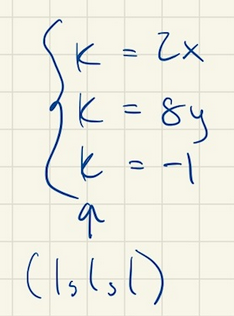 k = 2x
k = 8y
k = -1
q
(1,1,1)